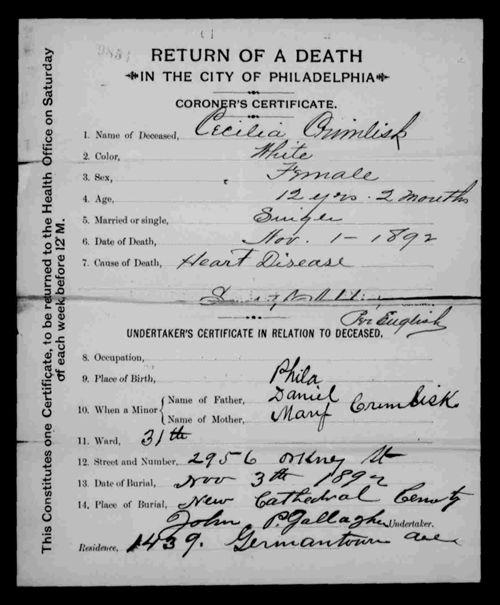 RETURN OF A DEATH
IN THE CITY OF PHILADELPHIA
CORONER'S CERTIFICATE.
1. Name of Deceased, Cecilia Crimlisk
2. Color, White
3. Sex, Female
4. Age, 12 yrs. 2 months
5. Married or single, Single
6. Date of Death, Nov. 1 - 1892
7. Cause of Death, Heart Disease
Per English
UNDERTAKER'S CERTIFICATE IN RELATION TO DECEASED.
8. Occupation,
9. Place of Birth, Phila
10. When a Minor { Name of Father, Daniel
Name of Mother, Mary Crimlisk
11. Ward, 31th
12. Street and Number, 2956 Orkney St
13. Date of Burial, Nov 3th 1892
14. Place of Burial, New Cathedral Cemety
John P. Gallagher Undertaker.
Residence, 1439. Germantown ave
This Constitutes one Certificate, to be returned to the Health Office on Saturday
of each week before 12 M.